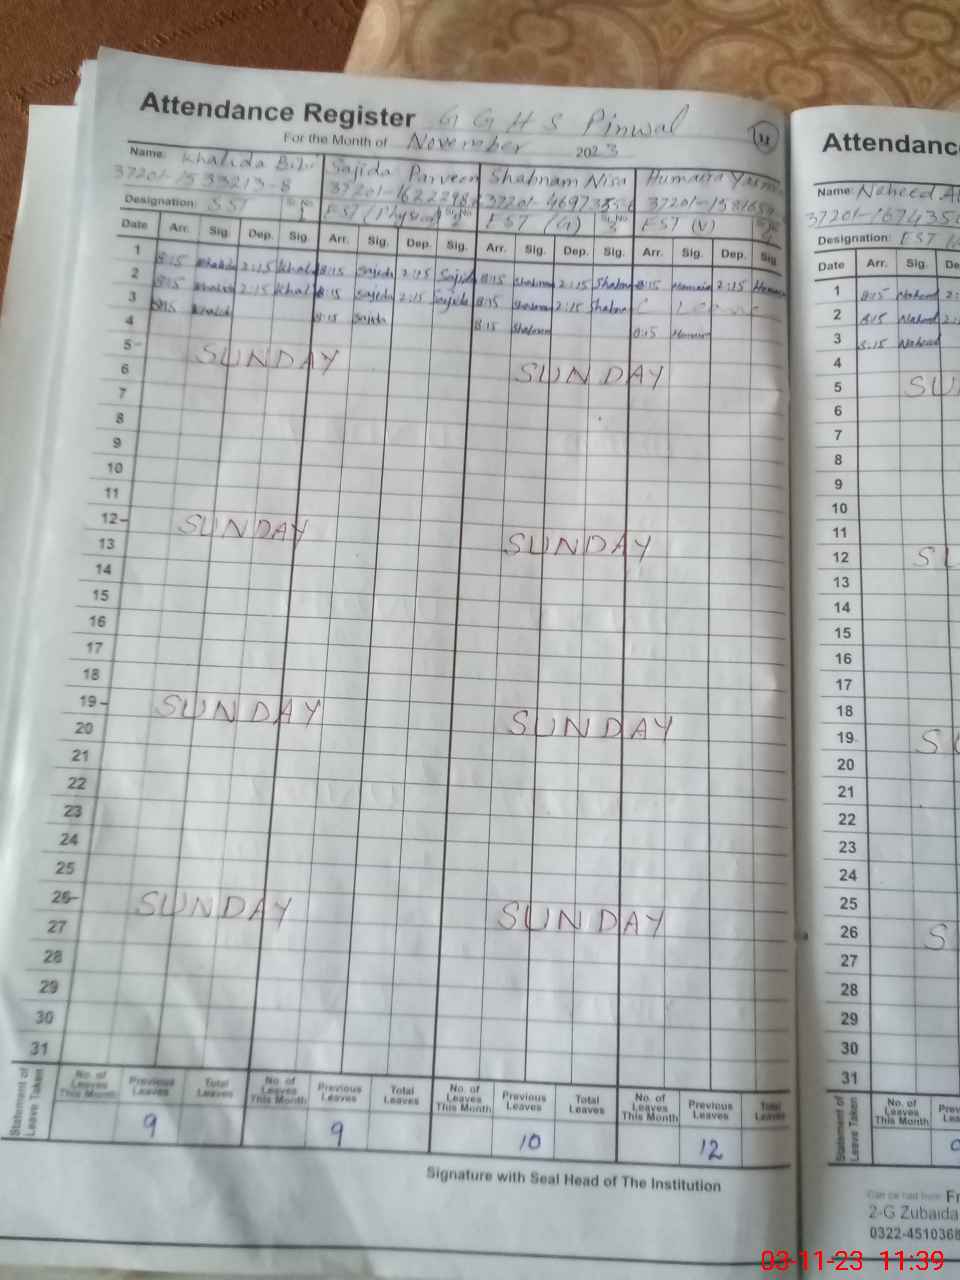 Attendance Register G G H S Pinwal
For the Month of November 2023
Name: Khalida Bibi Sajida Parveen Shabnam Nisa Humaira
37201- 37201- 37201- 37201-
Designation: SST Sr.No 1 EST (Physical) Sr.No 2 EST (G) Sr.No 3 EST (V)
Date Arr. Sig. Dep. Sig. Arr. Sig. Dep. Sig. Arr. Sig. Dep. Sig. Arr. Sig. Dep. Sig.
1 8:15 Khalida 2:15 Khalida 8:15 Sajida 2:15 Sajida 8:15 Shabnam 2:15 Shabnam 8:15 Humaira 2:15 Humaira
2 8:15 Khalida 2:15 Khalida 8:15 Sajida 2:15 Sajida 8:15 Shabnam 2:15 Shabnam C Leave
3 8:15 Khalida 8:15 Sajida 8:15 Shabnam 8:15 Humaira
4
5- SUNDAY SUNDAY
6
7
8
9
10
11
12- SUNDAY SUNDAY
13
14
15
16
17
18
19- SUNDAY SUNDAY
20
21
22
23
24
25
26- SUNDAY SUNDAY
27
28
29
30
31
Statement of Leave Taken
No. of Leaves This Month Previous Leaves Total Leaves No. of Leaves This Month Previous Leaves Total Leaves No. of Leaves This Month Previous Leaves Total Leaves No. of Leaves This Month Previous Leaves Total Leaves
9 9 10 12
Signature with Seal Head of The Institution
Attendanc
Name: Naheed
37201-
Designation: EST
Date Arr. Sig. De
1 8:15 Naheed 2:
2 8:15 Naheed 2:
3 8:15 Naheed
4
5 SU
6
7
8
9
10
11
12 SU
13
14
15
16
17
18
19 S
20
21
22
23
24
25
26 S
27
28
29
30
31
Statement of Leave Taken
No. of Leaves This Month Prev Lea
Can be had from: Fr
2-G Zubaida
0322-4510368
03-11-23 11:39